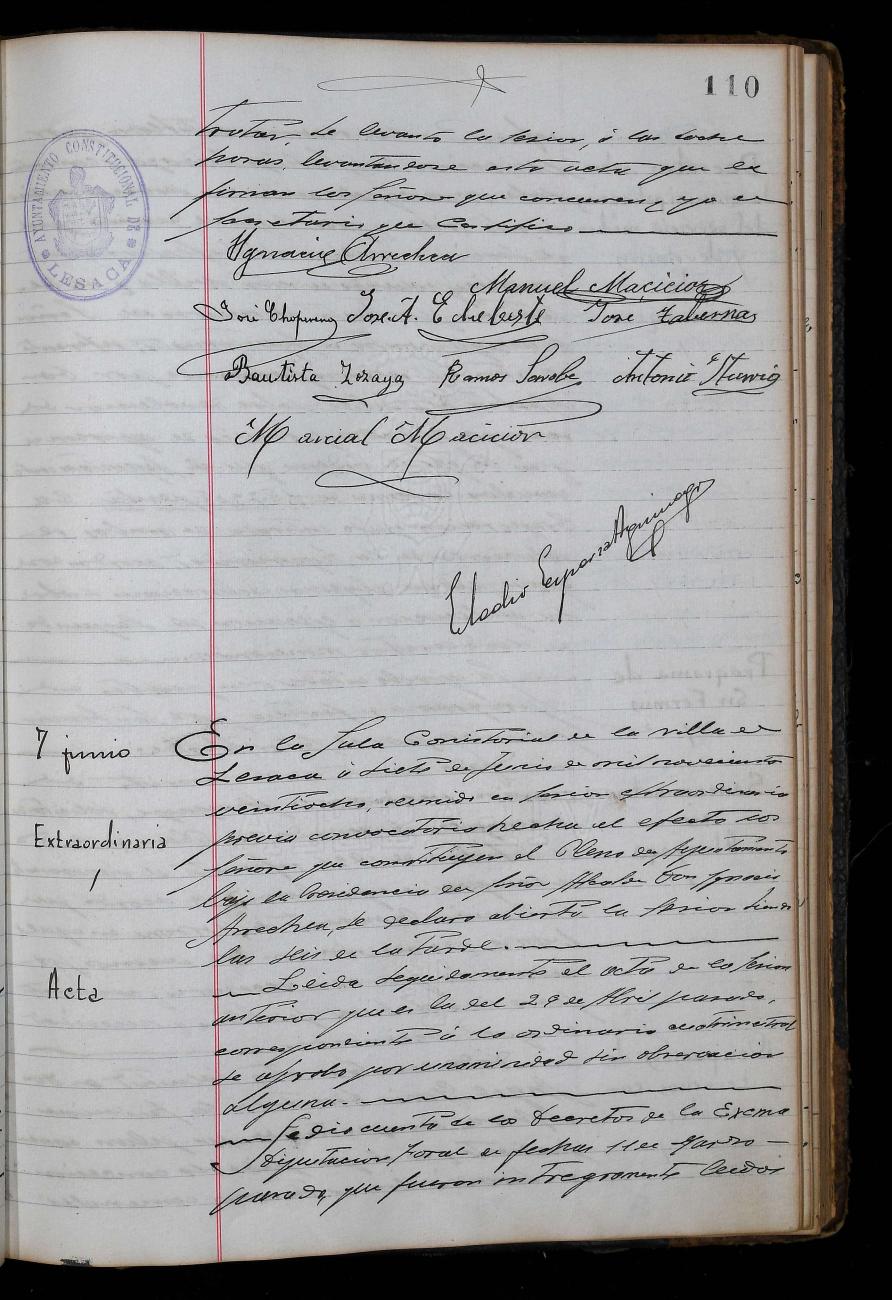 110
AYUNTAMIENTO CONSTITUCIONAL DE
LESACA
tratar, se levantó la sesion, á las doce
horas, levantandose esta acta que la
firman los Señores que concurren, y yo el
Secretario que Certifico
Ygnacio Arrechea
Manuel Macicior
José José A. Echebeste José Tabernas
Bautista Zozaya Ramos Sarobe Antonio
Marcial Macicior
Eladio Esparza Aguinaga
7 junio
En la Sala Consistorial de la villa de
Lesaca á siete de Junio de mil novecientos
veintiocho, reunido en sesion extraordinaria
Extraordinaria
previa convocatoria hecha al efecto los
Señores que constituyen el Pleno de Ayuntamiento
bajo la Presidencia del Señor Alcalde Don Ignacio
Arrechea, se declaró abierta la sesion siendo
las seis de la tarde.
Acta
Leida seguidamente el acta de la sesion
anterior que es la del 29 de Abril pasado,
correspondiente á la ordinaria cuatrimestral
se aprobó por unanimidad sin observacion
alguna.
Se dio cuenta de los Decretos de la Excma
Diputacion Foral de fechas 11 de Marzo
pasado, que fueron integramente leidos